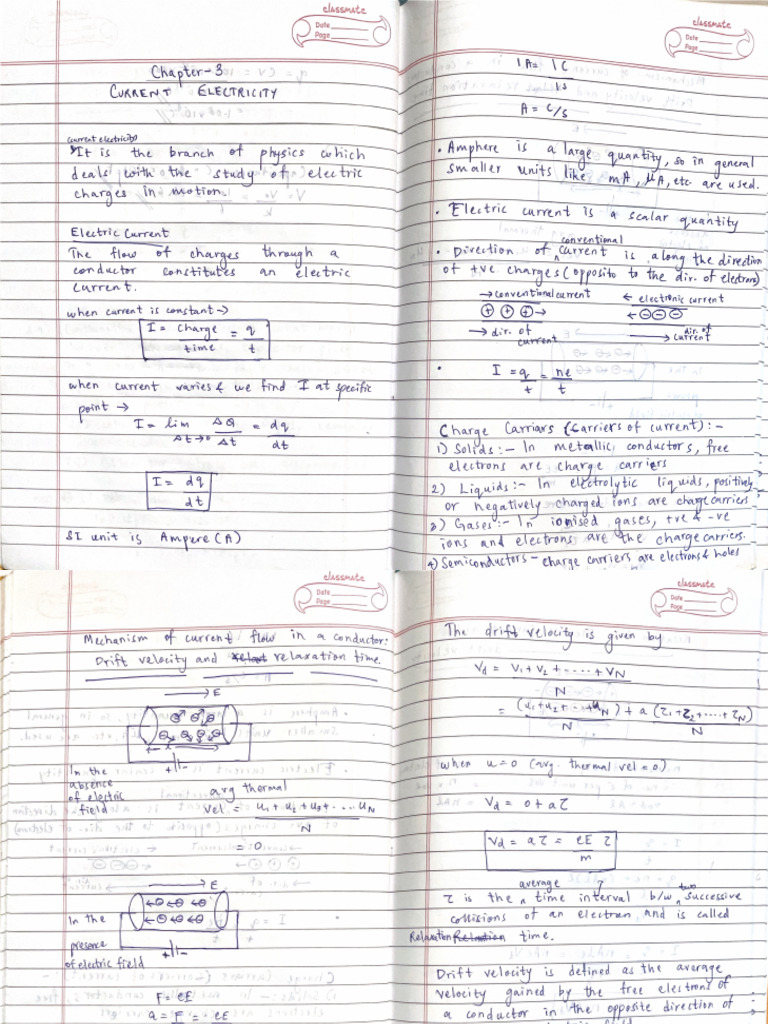 classmate
Date
Page
Chapter-3
CURRENT ELECTRICITY
current electricity
It is the branch of physics which
deals with the study of electric
charges in motion.
Electric Current
The flow of charges through a
conductor constitutes an electric
current.
when current is constant →
I = charge / time = q / t
when current varies & we find I at specific
point →
I = lim Δt→0 ΔQ / Δt = dq / dt
I = dq / dt
SI unit is Ampere (A)
classmate
Date
Page
1A = 1C / 1s
A = C/s
• Amphere is a large quantity, so in general
smaller units like mA, μA, etc are used.
• Electric current is a scalar quantity
• Direction of conventional current is along the direction
of +ve charges (opposite to the dir. of electrons)
→ conventional current ← electronic current
⊕ ⊕ ⊕ → ← ⊖ ⊖ ⊖
→ dir. of current → dir. of current
• I = q / t = ne / t
Charge Carriars (Carriers of current) :-
1) Solids :- In metallic conductors, free
electrons are charge carriers
2) Liquids :- In electrolytic liquids, positively
or negatively charged ions are charge carriers
3) Gases :- In ionised gases, +ve & -ve
ions and electrons are the charge carriers.
4) Semiconductors - charge carriers are electrons & holes
classmate
Date
Page
Mechanism of current flow in a conductor:
Drift velocity and relaxation time.
→ E
+ -
In the
absence
of electric
field
avg thermal
vel. = u1 + u2 + u3 + .... uN / N
= 0
→ E
In the
presence
of electric field
+ -
F = eE
a = F = eE
classmate
Date
Page
The drift velocity is given by
Vd = V1 + V2 + ..... + VN / N
= (u1 + u2 + ... + uN) / N + a (τ1 + τ2 + .... + τN) / N
when u = 0 (avg. thermal vel = 0)
Vd = 0 + aτ
Vd = aτ = eE / m τ
τ is the average time interval b/w two successive
collisions of an electron and is called
Relaxation time.
Drift velocity is defined as the average
velocity gained by the free electrons of
a conductor in the opposite direction of